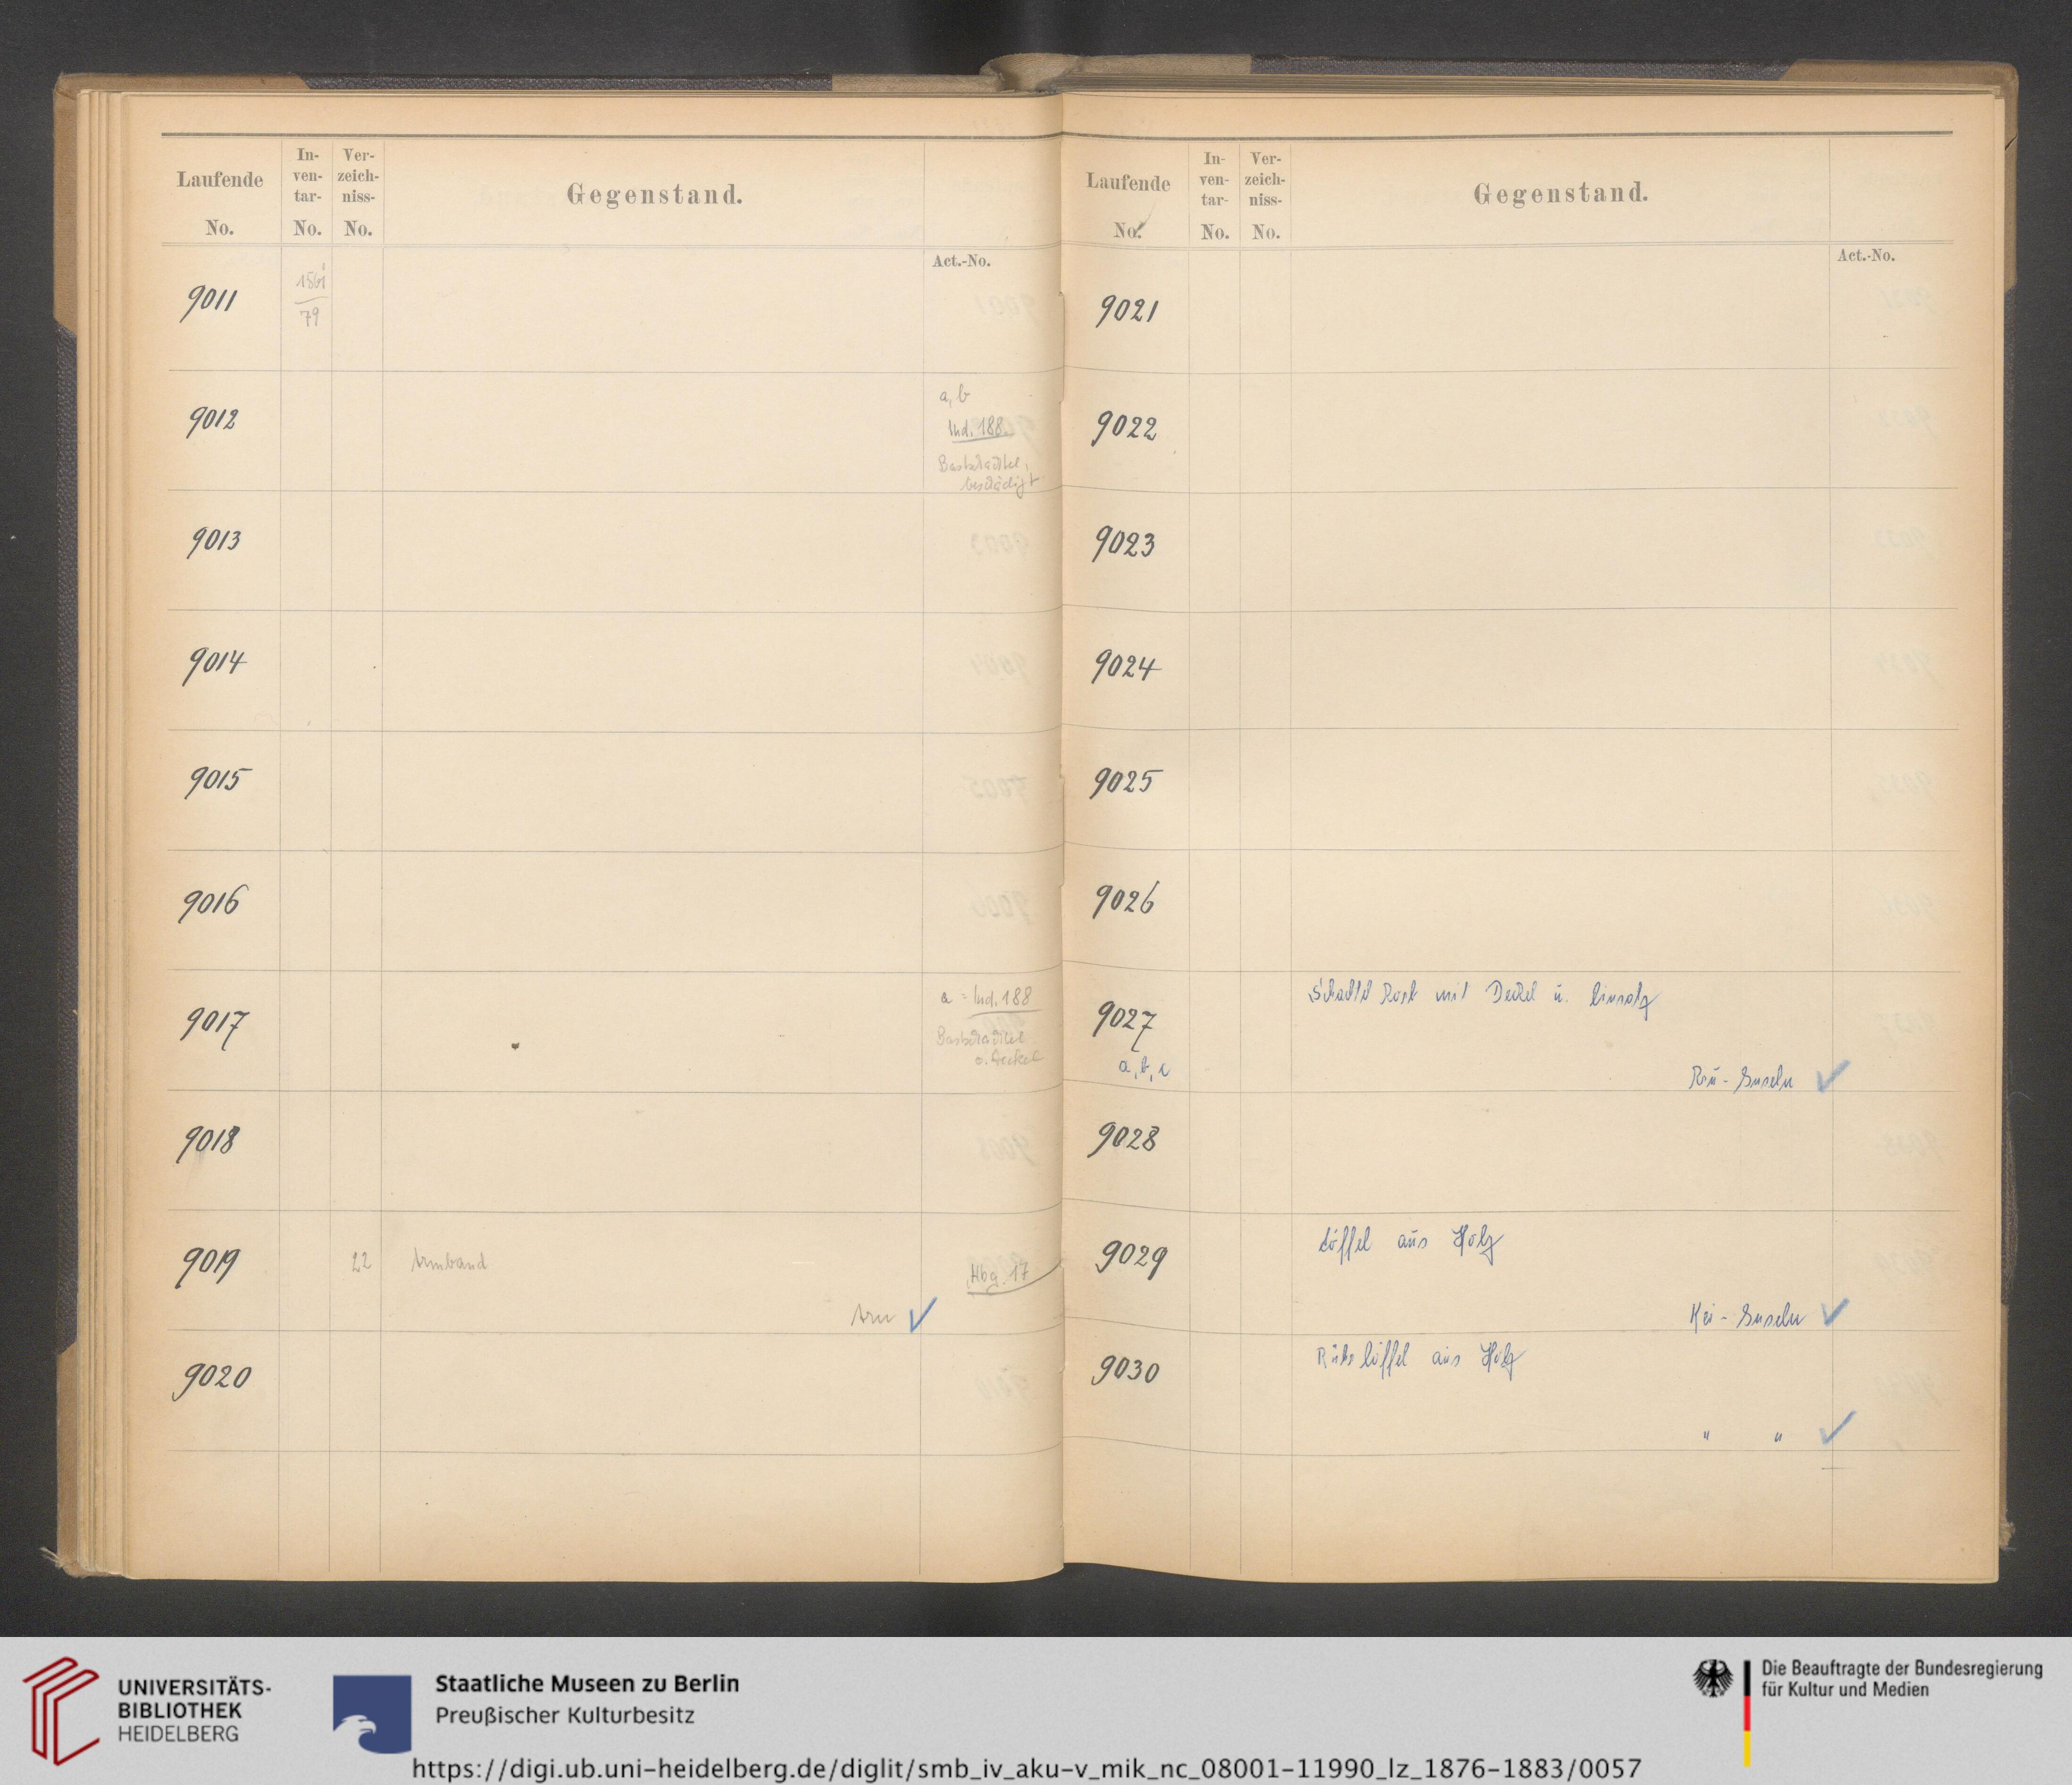 Laufende
No.
In-
ven-
tar-
No.
Ver-
zeich-
niss-
No.
Gegenstand.
Act.-No.
9011
79
9012
a, b
Ind. 188
Bastschachtel,
beschädigt
9013
9014
9015
9016
9017
a = Ind. 188
Bastschachtel
o. Deckel
9018
9019 22 Armband
Hbg. 17
Aru ✓
9020
Laufende
No.
In-
ven-
tar-
No.
Ver-
zeich-
niss-
No.
Gegenstand.
Act.-No.
9021
9022
9023
9024
9025
9026
9027
mit Deckel u. Einsatz
a, b, c
Inseln ✓
9028
9029 Löffel aus Holz
Kei-Inseln ✓
9030 löffel aus Holz
" " ✓
UNIVERSITÄTS-
BIBLIOTHEK
HEIDELBERG
Staatliche Museen zu Berlin
Preußischer Kulturbesitz
Die Beauftragte der Bundesregierung
für Kultur und Medien
https://digi.ub.uni-heidelberg.de/diglit/smb_iv_aku-v_mik_nc_08001-11990_lz_1876-1883/0057